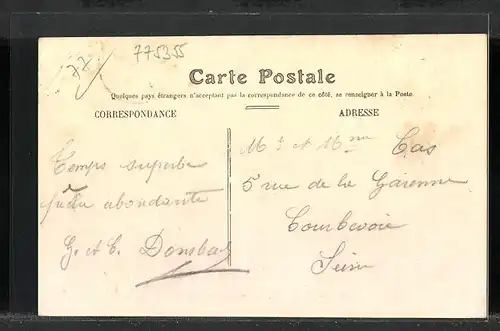 77
775355
Carte Postale
Quelques pays étrangers n'acceptant pas la correspondance de ce côté, se renseigner à la Poste.
CORRESPONDANCE
ADRESSE
Temps superbe
abondante
G. et C.
Mr et Mme Cas
5 rue de la Garenne
Courbevoie
Seine